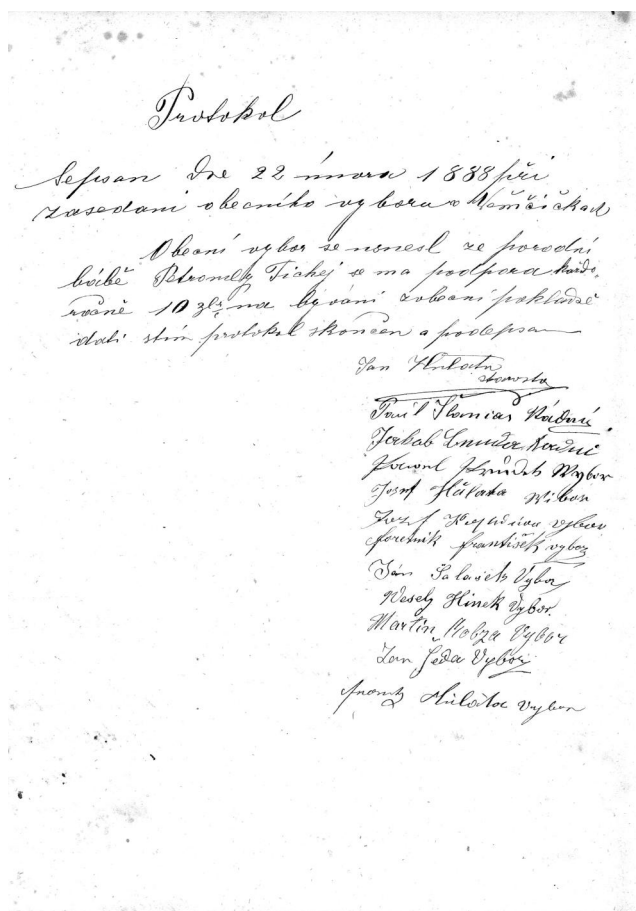 Protokol
Sepsan dne 22 února 1888 při
zasedani obecního vyboru v Němčičkach
Obecní vybor se usnesl ze porodní
bábě Petronely Tichej se ma podpora každo-
ročně 10 zl. na byváni zobecní pokladně
dati stím protokol skončen a podepsan
Jan Hulata
starosta
Pavil Radní
Jakub Radni
Pavel Wybor
Josef Hŭlata Wibor
Jozef vybor
foretnik František vybor
Ján Salaseh Vybor
Wesely Hinek Vybor.
Martin Kobza Vybor
Jan Šeda Vybor
Hulata vybor